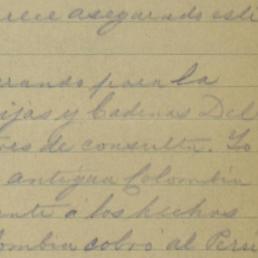 rece asegurado est
rando para la
ijas y Cadenas Del
res de consulta. Yo
antigua Colombia
ante á los hechos
ombia cobró al Perú